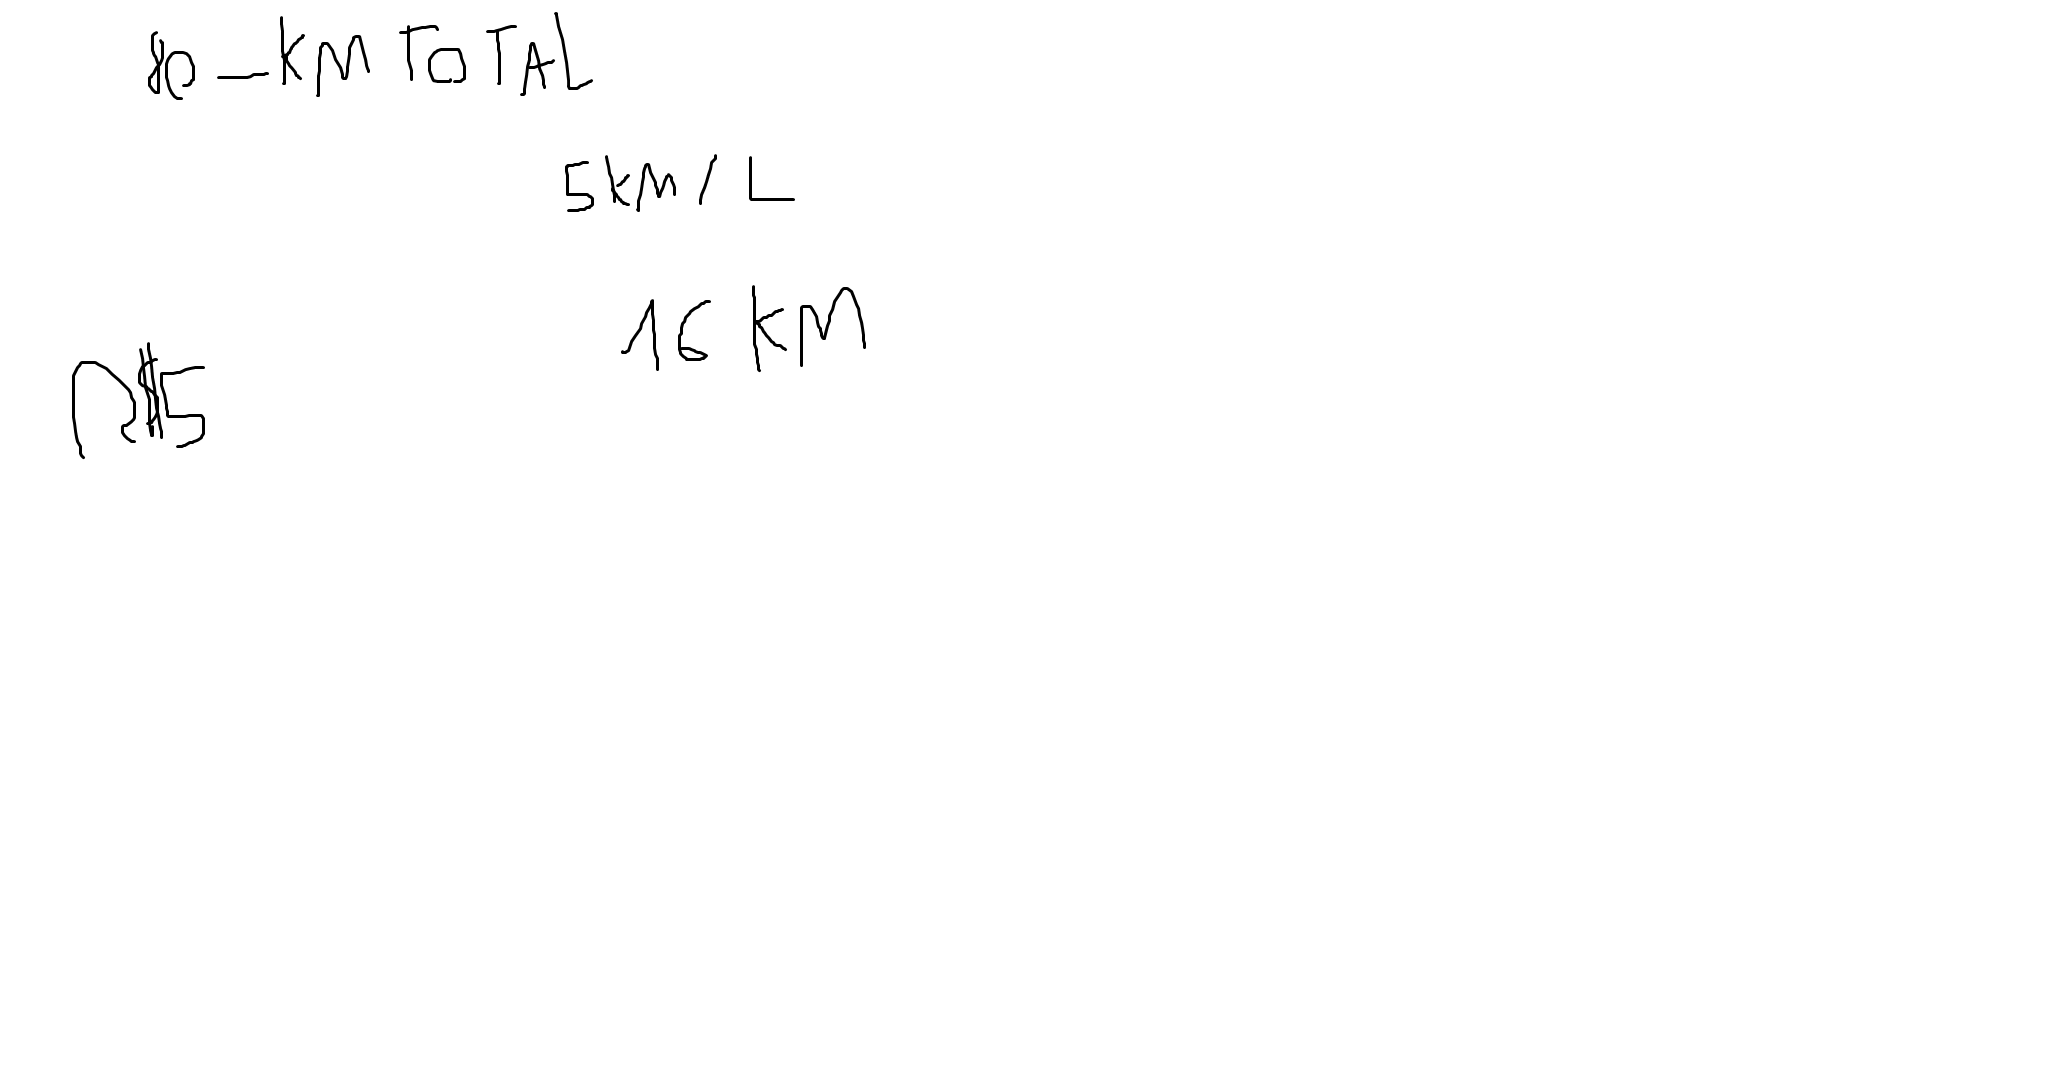 80 _ KM TOTAL
5KM / L
16 KM
R$5